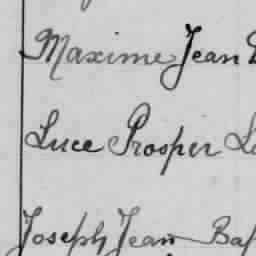 Maxime Jean
Luce Prosper
Joseph Jean Bap